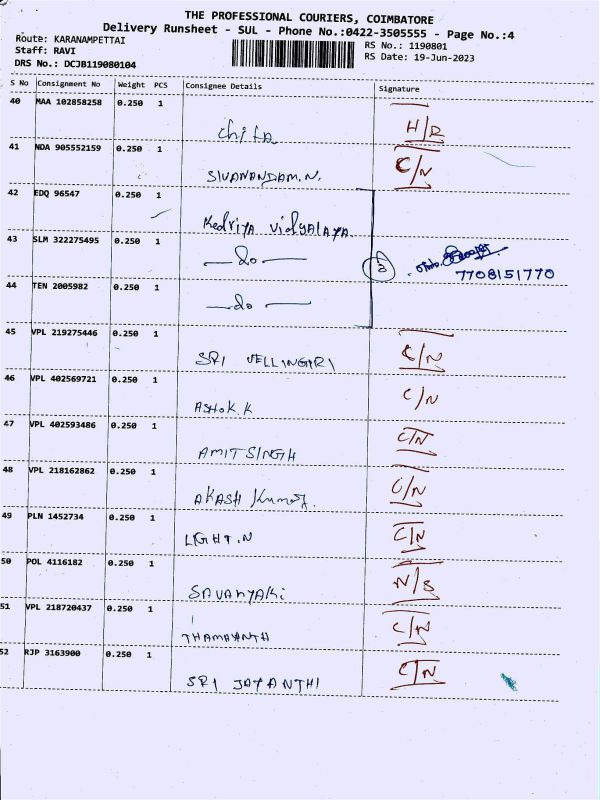 THE PROFESSIONAL COURIERS, COIMBATORE
Delivery Runsheet - SUL - Phone No.:0422-3505555 - Page No.:4
Route: KARANAMPETTAI RS No.: 1190801
Staff: RAVI RS Date: 19-Jun-2023
DRS No.: DCJB119080104
S No Consignment No Weight PCS Consignee Details Signature
40 MAA 102858258 0.250 1
chita H/R
41 NDA 905552159 0.250 1 C/N
SIVANANDAM.N.
42 EDQ 96547 0.250 1
Kedriya VidyALAYA
43 SLM 322275495 0.250 1
—do— 3 7708151770
44 TEN 2005982 0.250 1
—do—
45 VPL 219275446 0.250 1
SRI VELLINGIRI C/N
46 VPL 402569721 0.250 1 C/N
ASHOK.K
47 VPL 402593486 0.250 1 C/N
AMIT SINGH
48 VPL 218162862 0.250 1 C/N
AKASH Kumar.
49 PLN 1452734 0.250 1
LIGHT.N C/N
50 POL 4116182 0.250 1 N/S
51 VPL 218720437 0.250 1 C/N
THAMAYANTH
52 RJP 3163900 0.250 1 C/N
SRI JAYANTHI